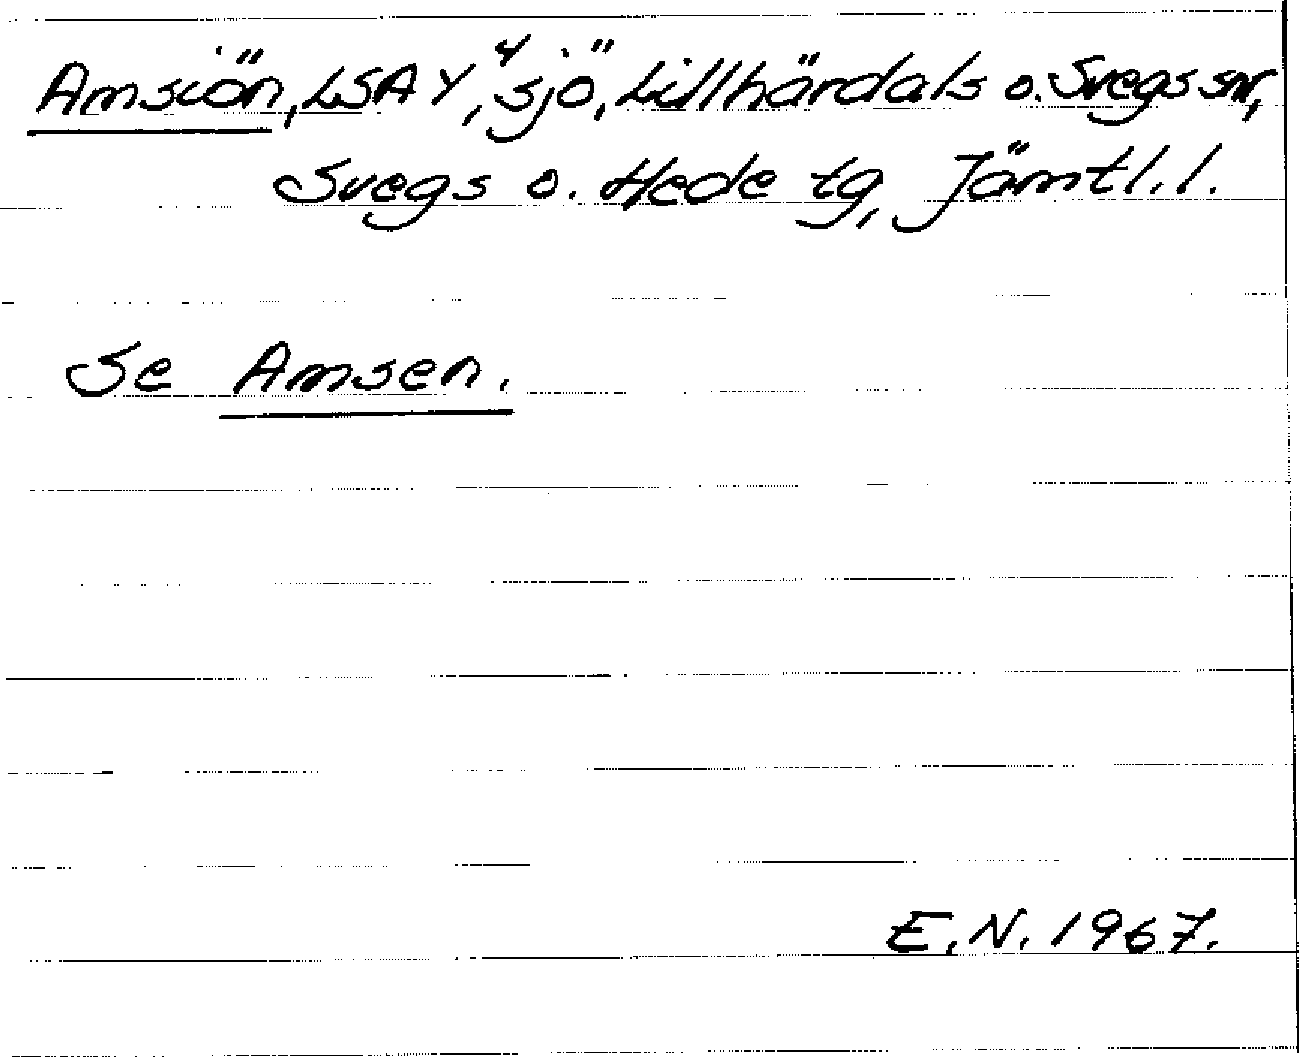 Amsiön, LSA Y,⁴ sjö, Lillhärdals o. Svegs snr,
Svegs o. Hede tg, Jämtl. l.
Se Amsen.
E.N. 1967.